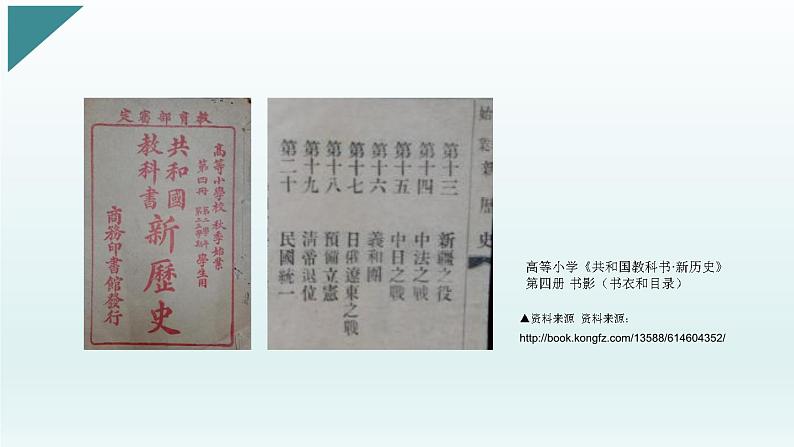 教育部審定
高等小學校 秋季始業
第四册 學生用
共和國
教科書
新歷史
商務印書館發行
始業新歷史
第十三 新疆之役
第十四 中法之戰
第十五 中日之戰
第十六 義和團
第十七 日俄遼東之戰
第十八 預備立憲
第十九 清帝退位
第二十 民國統一
高等小学《共和国教科书·新历史》
第四册 书影（书衣和目录）
▲资料来源 资料来源：
http://book.kongfz.com/13588/614604352/